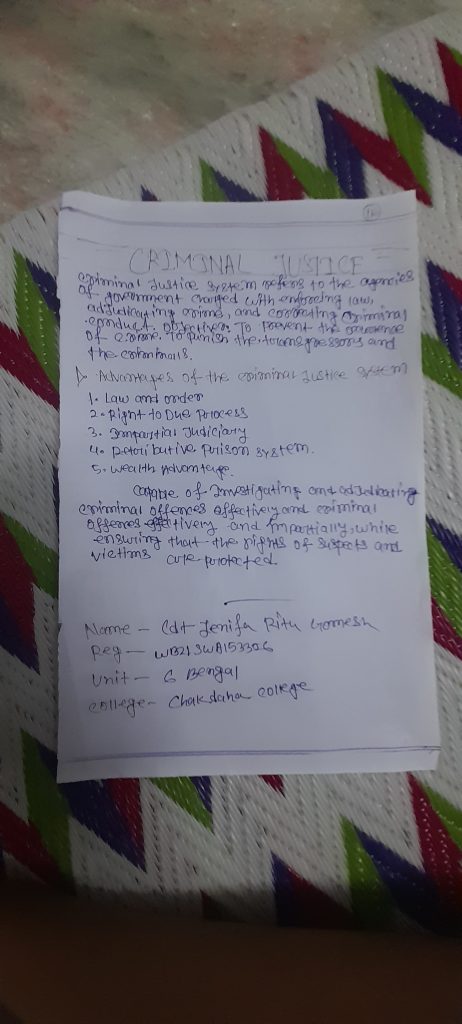 CRIMINAL JUSTICE
Criminal Justice System refers to the agencies
of government charged with enforcing law,
adjudicating crime, and correcting criminal
conduct. Objectives: To prevent the occurence
of crime. To punish the transgressors and
the criminals.
▷ Advantages of the criminal Justice system
1. Law and order
2. Right to Due Process
3. Impartial Judiciary
4. Retributive Prison system.
5. wealth Advantage.
Capable of Investigating and adjudicating
criminal offences effatively and criminal
offences effitively and Impartially, while
ensuring that the rights of suspects and
victims are protected.
Name - Cdt Jenifa Ritu Gomesh
Reg - WB21SWA153306
Unit - 6 Bengal
College - Chakdaha College